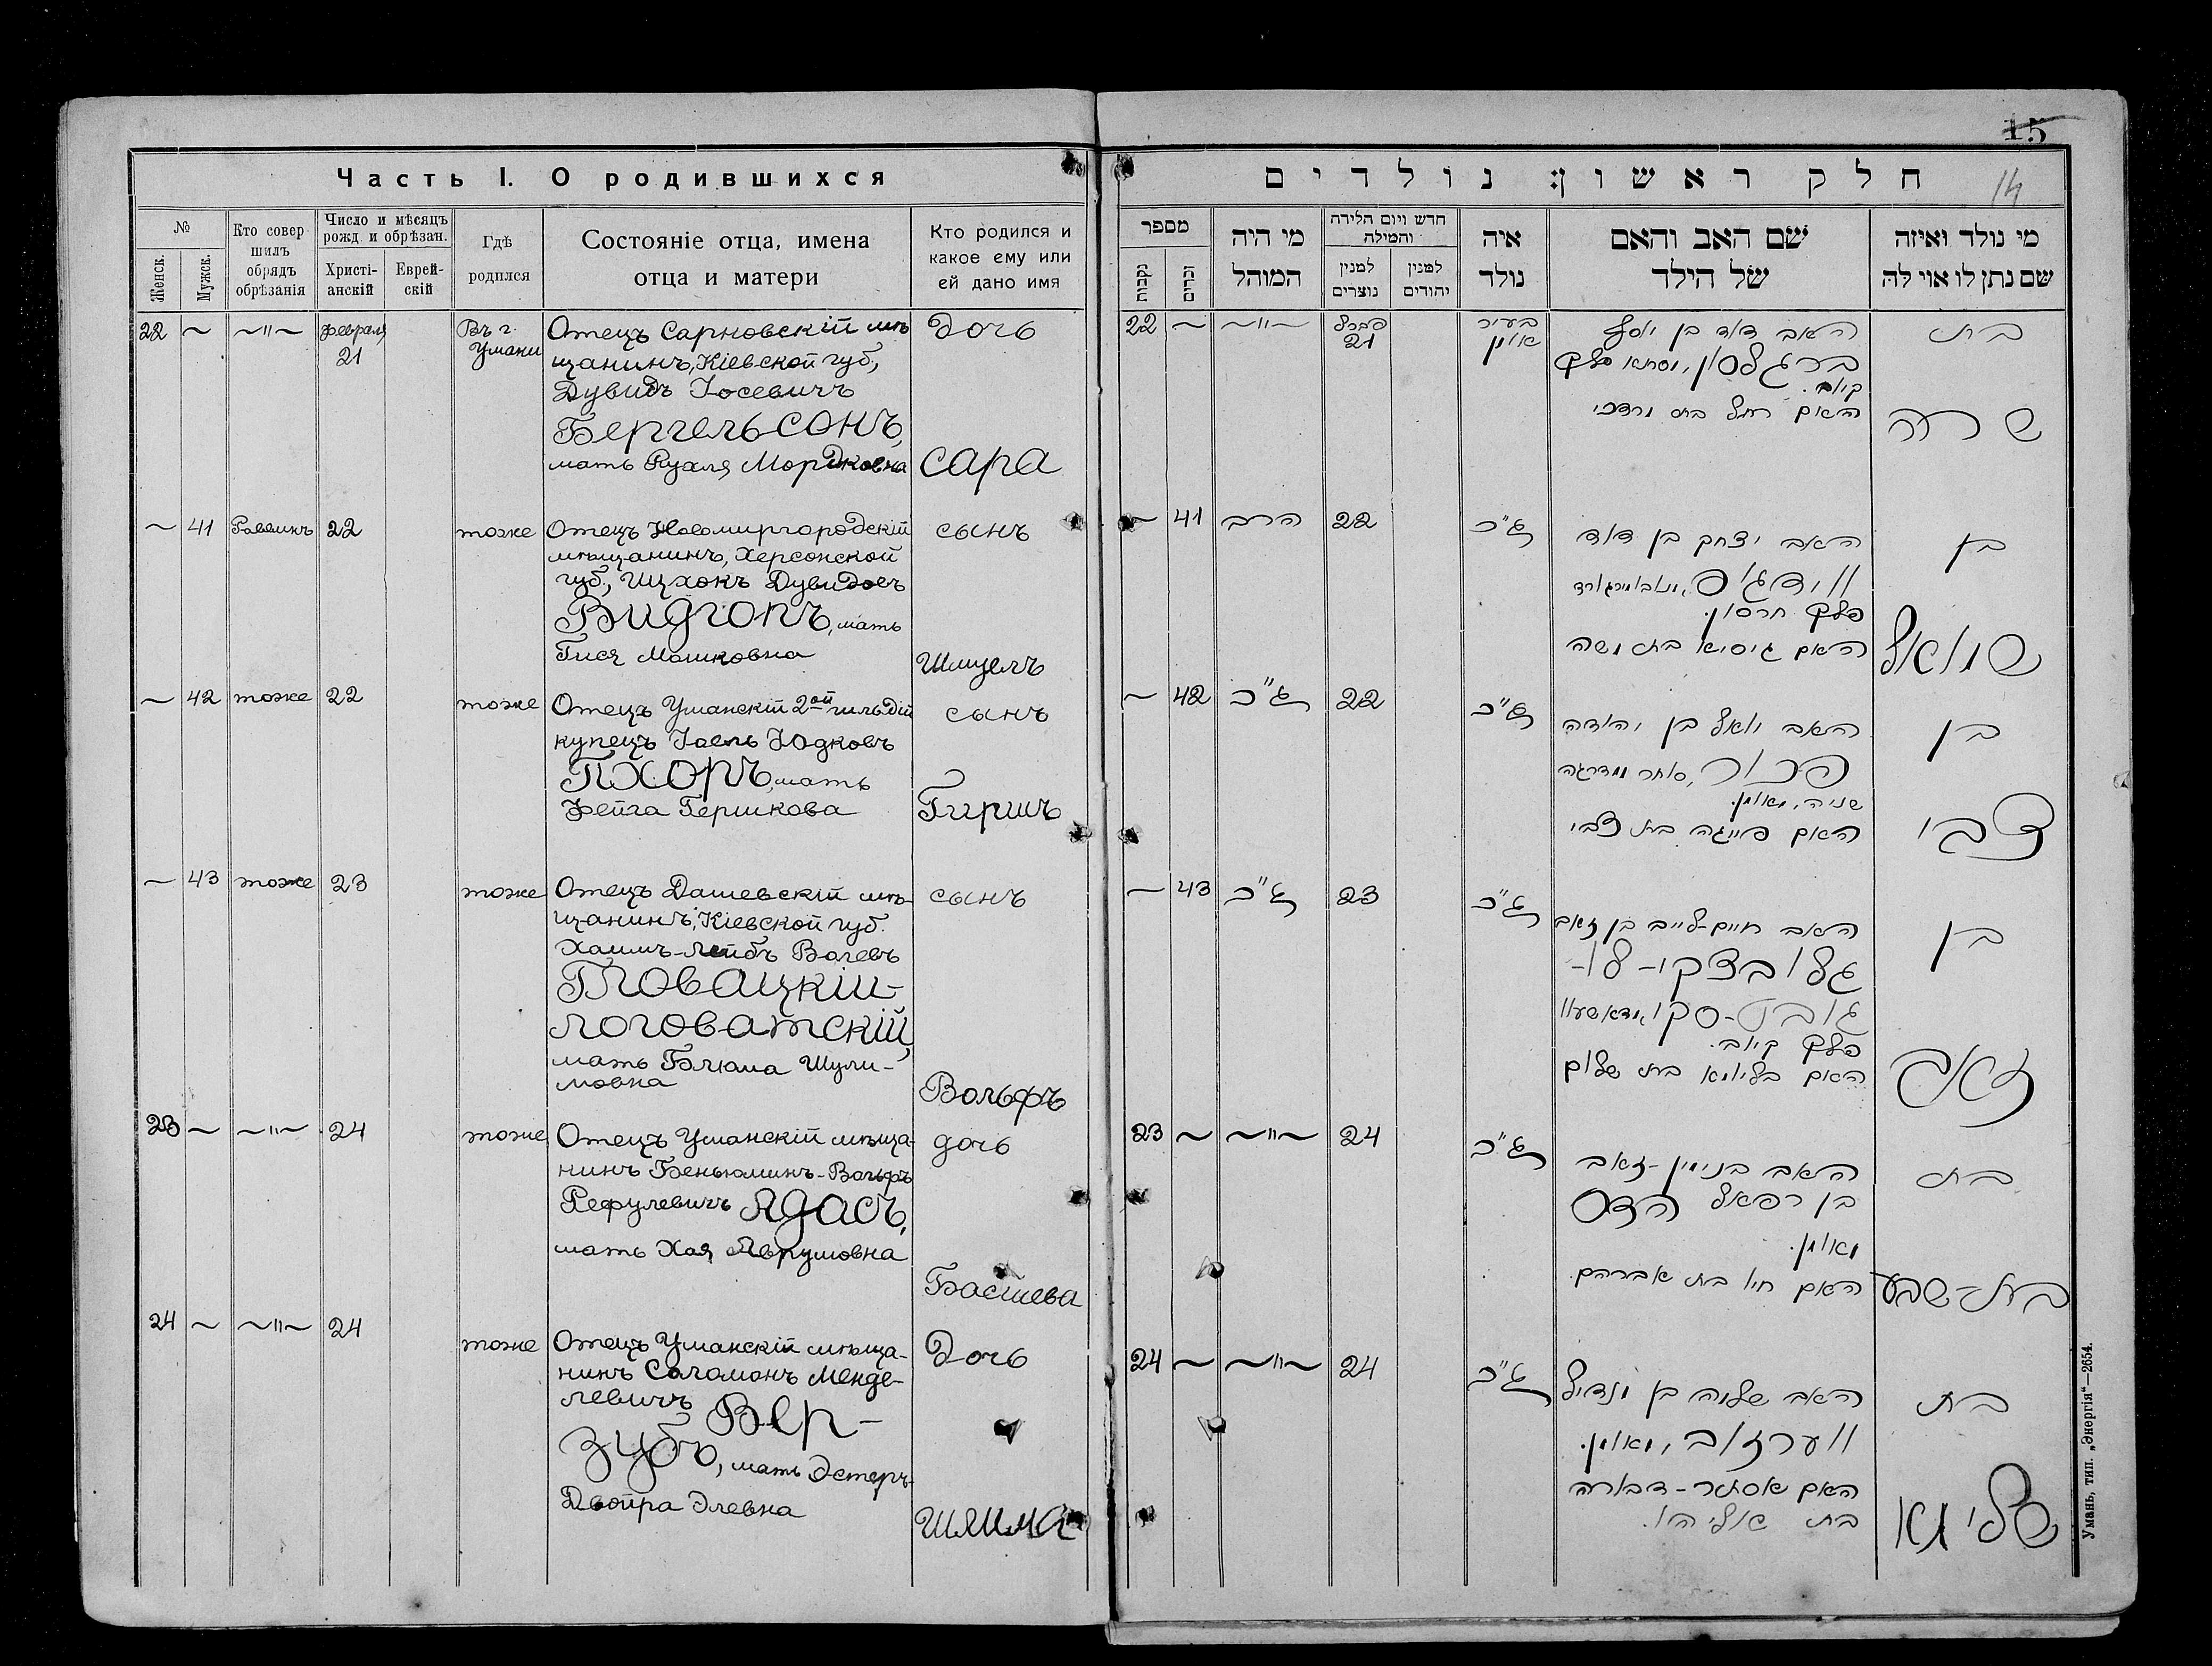 Часть I. О родившихся
№
Женск.
Мужск.
Кто совер
шилъ
обрядъ
обрѣзанія
Число и мѣсяцъ
рожд. и обрѣзан.
Христі-
анскій
Еврей-
скій
Гдѣ
родился
Состояніе отца, имена
отца и матери
Кто родился и
какое ему или
ей дано имя
22 ~ ~"~ февраля
21
Въ г.
Умани
Отецъ Сарновскій мѣ
щанинъ, Кіевской губ.,
Дувидъ Іосевичъ
Бергельсонъ,
мать Рухля Мордковна
Дочь
Сара
~ 41 Раввинъ 22 тоже
Отецъ Новомиргородскій
мѣщанинъ, Херсонской
губ., Ицхокъ Дувидовъ
Видгопъ, мать
Гися Мошковна
сынъ
Шмуель
~ 42 тоже 22 тоже
Отецъ Уманскій 2ой гильдіи
купецъ Іоель Юдковъ
Пхоръ, мать
Фейга Гершкова
сынъ
Гиршъ
~ 43 тоже 23 тоже
Отецъ Дашевскій мѣ-
щанинъ, Кіевской губ.
Хаимъ-Лейбъ Волевъ
Гловацкій-
Логоватскій,
мать Блюма Шули-
мовна
сынъ
Вольфъ
23 ~ ~"~ 24 тоже
Отецъ Уманскій мѣща-
нинъ Беньюминъ-Вольфъ
Рефулевичъ Адасъ,
мать Хая Аврумовна
дочь
Басшева
24 ~ ~"~ 24 тоже
Отецъ Уманскій мѣща-
нинъ Соломонъ Менде-
левичъ Вер-
зубъ, мать Эстеръ-
Двойра Элевна
Дочь
Шлима
15
14
חלק ראשון: נולדים
מספר
נקבות
זכרים
מי היה
המוהל
חדש ויום הלידה
והמילה
למנין
נוצרים
למנין
יהודים
איה
נולד
שם האב והאם
של הילד
מי נולד ואיזה
שם נתן לו או לה
22 ~ ~"~
21
בעיר
אומן
האב דוד בן יוסף
ברגלסון, פלך
קיוב.
האם רחל בת מרדכי
בת
שרה
~ 41 הרב 22 ג"כ
האב יצחק בן דוד
ווידגאפ,
פלך חרסון.
האם גיסיא בת משה
בן
שמואל
~ 42 ג"כ 22 ג"כ
האב יואל בן יהודה
פכור, סוחר ממדרגה
שניה, מאומן.
האם פייגה בת צבי
בן
צבי
~ 43 ג"כ 23 ג"כ
האב חיים-לייב בן זאב
גלובצקי-לו-
גובט-סקי, מדאשעוו
פלך קיוב.
האם בליומא בת שלום
בן
זאב
23 ~ ~"~ 24 ג"כ
האב בנימין-זאב
בן רפאל הדס
מאומן.
האם חיה בת אברהם
בת
בת-שבע
24 ~ ~"~ 24 ג"כ
האב שלמה בן מנדיל
ווערזוב, מאומן.
האם אסתר-דבורה
בת אליהו.
בת
שלימא
Умань, тип. „Энергія"—2654.